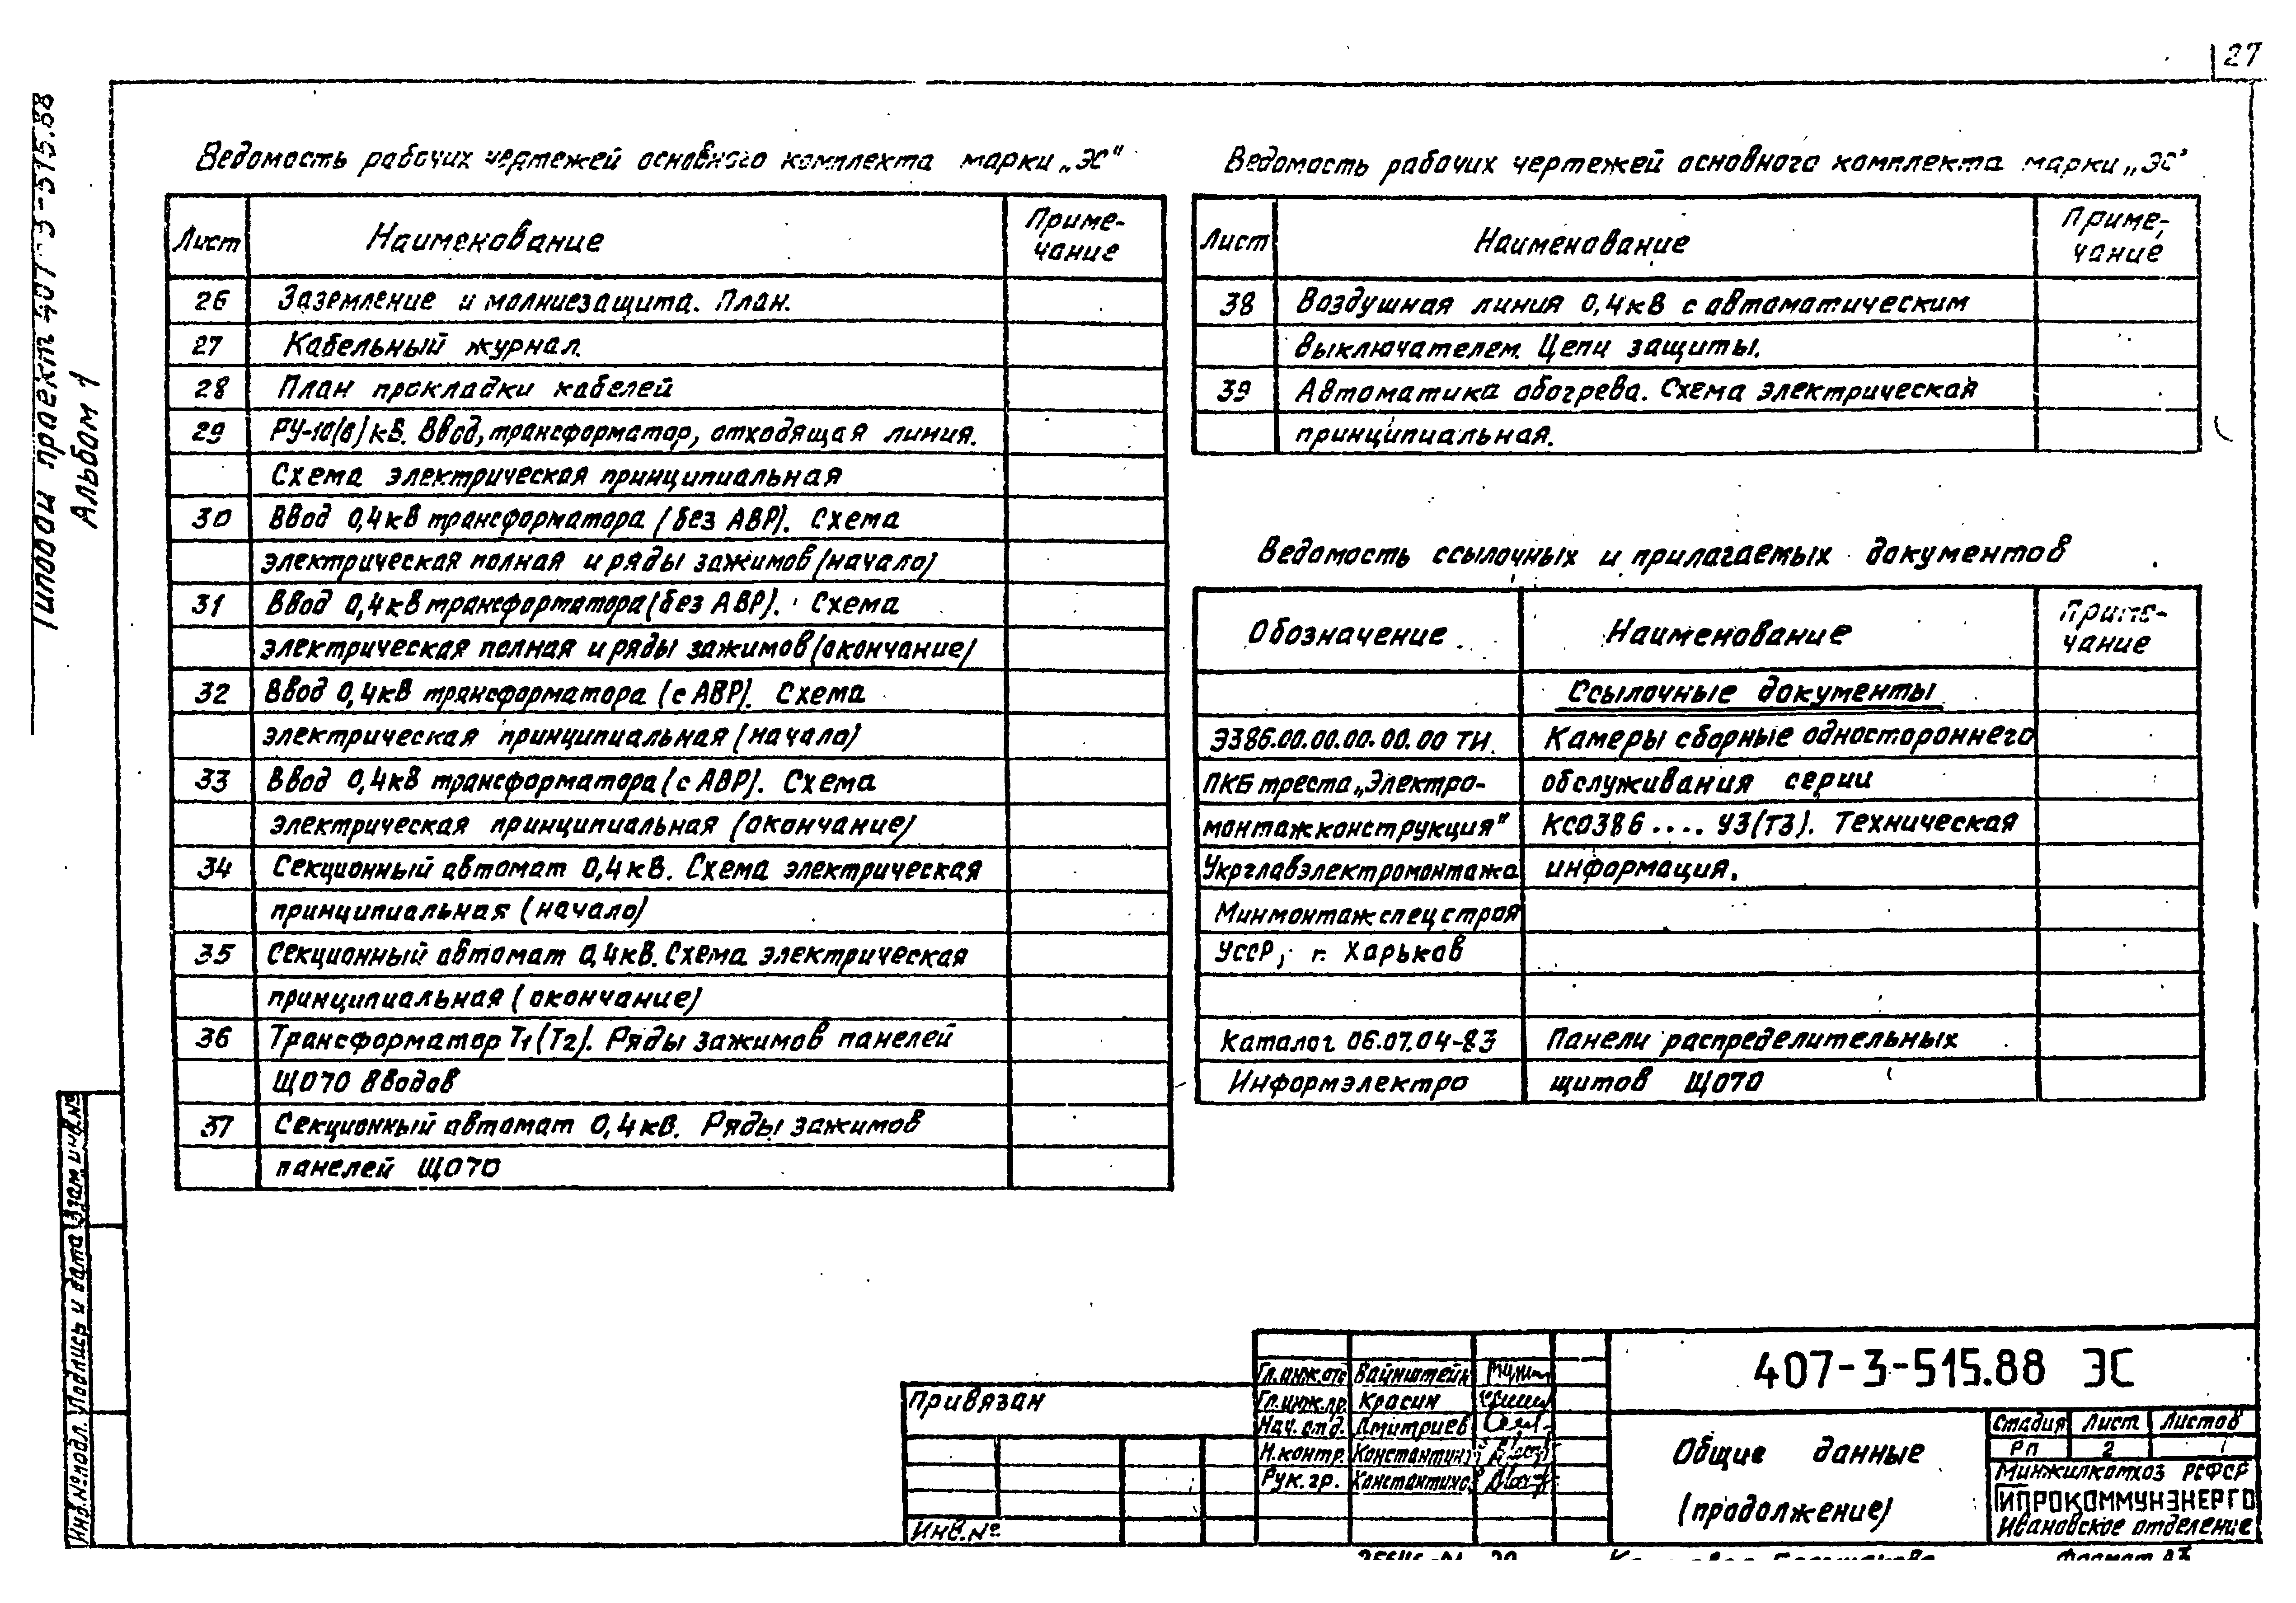 27
Типовой проект 407-3-515.88
Альбом 1
Ведомость рабочих чертежей основного комплекта марки „ЭС"
Лист Наименование Приме-
чание
26 Заземление и молниезащита. План.
27 Кабельный журнал.
28 План прокладки кабелей
29 РУ-10(6)кВ. Ввод, трансформатор, отходящая линия.
Схема электрическая принципиальная
30 Ввод 0,4кВ трансформатора (без АВР). Схема
электрическая полная и ряды зажимов (начало)
31 Ввод 0,4кВ трансформатора (без АВР). Схема
электрическая полная и ряды зажимов (окончание)
32 Ввод 0,4кВ трансформатора (с АВР). Схема
электрическая принципиальная (начало)
33 Ввод 0,4кВ трансформатора (с АВР). Схема
электрическая принципиальная (окончание)
34 Секционный автомат 0,4кВ. Схема электрическая
принципиальная (начало)
35 Секционный автомат 0,4кВ. Схема электрическая
принципиальная (окончание)
36 Трансформатор Т1(Т2). Ряды зажимов панелей
ЩО70 вводов
37 Секционный автомат 0,4кВ. Ряды зажимов
панелей ЩО70
Ведомость рабочих чертежей основного комплекта марки „ЭС"
Лист Наименование Приме-
чание
38 Воздушная линия 0,4кВ с автоматическим
выключателем. Цепи защиты.
39 Автоматика обогрева. Схема электрическая
принципиальная.
Ведомость ссылочных и прилагаемых документов
Обозначение Наименование Приме-
чание
Ссылочные документы
Э386.00.00.00.00.00 ТИ. Камеры сборные одностороннего
ПКБ треста „Электро- обслуживания серии
монтажконструкция" КСО386 .... У3(Т3). Техническая
Укрглавэлектромонтажа информация.
Минмонтажспецстроя
УССР, г. Харьков
Каталог 06.07.04-83 Панели распределительных
Информэлектро щитов ЩО70
Инв.№ подл. Подпись и дата Взам.инв.№
Привязан
Инв.№
Гл.инж.отд Вайнштейн
Гл.инж.пр. Красин
Нач.отд. Дмитриев
Н.контр. Константинов
Рук.гр. Константинов
407-3-515.88 ЭС
Общие данные
(продолжение)
Стадия Лист Листов
РП 2
Минжилкомхоз РСФСР
ГИПРОКОММУНЭНЕРГО
Ивановское отделение
Формат А3